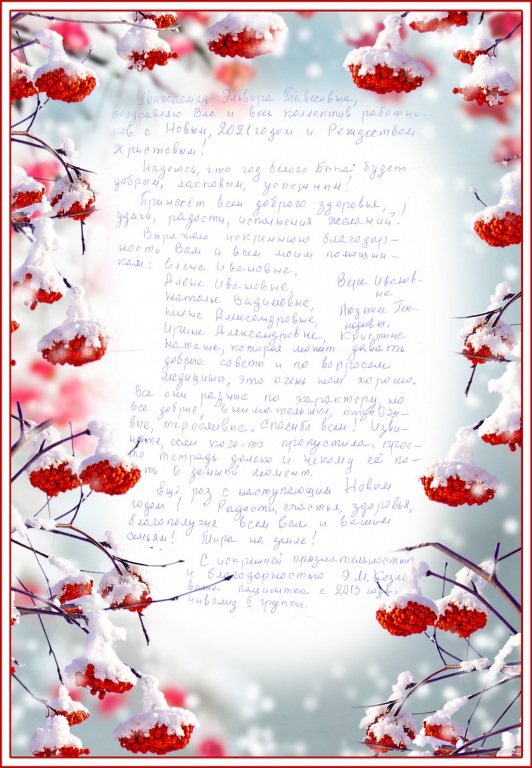 Уважаемая Эльвира Павесовна,
поздравляю Вас и весь коллектив работни-
ков с Новым, 2021 годом и Рождеством
Христовым!
Надеюсь, что год белого Быка будет
добрым, ласковым, успешным!
Принесёт всем доброго здоровья,
удачи, радости, исполнения желаний!
Выражаю искреннюю благодар-
ность Вам и всем моим помощни-
кам: Елене Ивановне,
Алене Ивановне, Вере Иванов-
не
Наталье Вадимовне, Людмиле Ген-
надьевне,
Нине Александровне,
Ирине Александровне, Кристине
Наташе, которая может давать
добрые советы и по вопросам
медицины, это очень нам хорошо.
Все они разные по характеру, но
все добрые, внимательные, отзывчи-
вые, терпеливые. Спасибо всем! Изви-
ните, если кого-то пропустила, прос-
то тетрадь далеко и некому её по-
ть в данный момент.
Ещё раз с наступающим Новым
годом! Радости, счастья, здоровья,
благополучия всем вам и вашим
семьям! Мира на земле!
С искренней признательностью
и благодарностью Э.М.
ваша пациентка с 2013 года,
инвалид I группы.